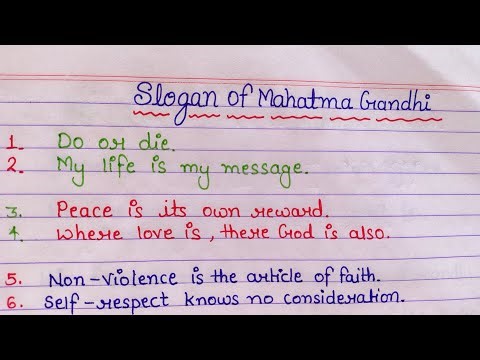 Slogan of Mahatma Gandhi
1. Do or die.
2. My life is my message.
3. Peace is its own reward.
4. Where love is, there God is also.
5. Non-violence is the article of faith.
6. Self-respect knows no consideration.